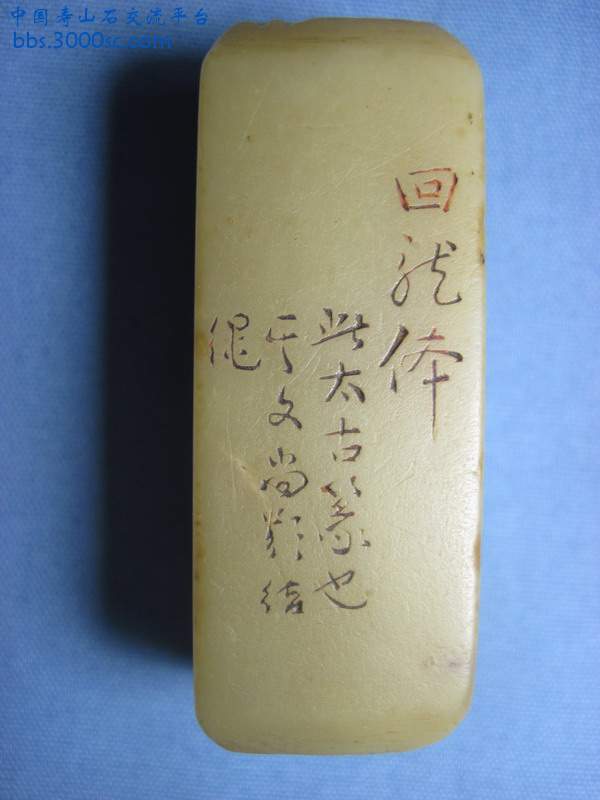 中国寿山石交流平台
bbs.3000sc.com
回龙体
此太古篆也
其文尚类结
绳